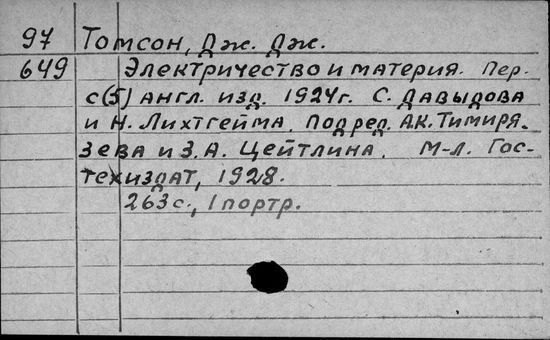 97 Томсон, Дж. Дж.
649 Электричество и материя. Пер.
с (5) англ. изд. 1924г. С. Давыдова
и Н. Лихтгейма. Под ред. А.К. Тимиря-
зева и З.А. Цейтлина. М-Л. Гос-
техиздат, 1928.
263с., 1 портр.